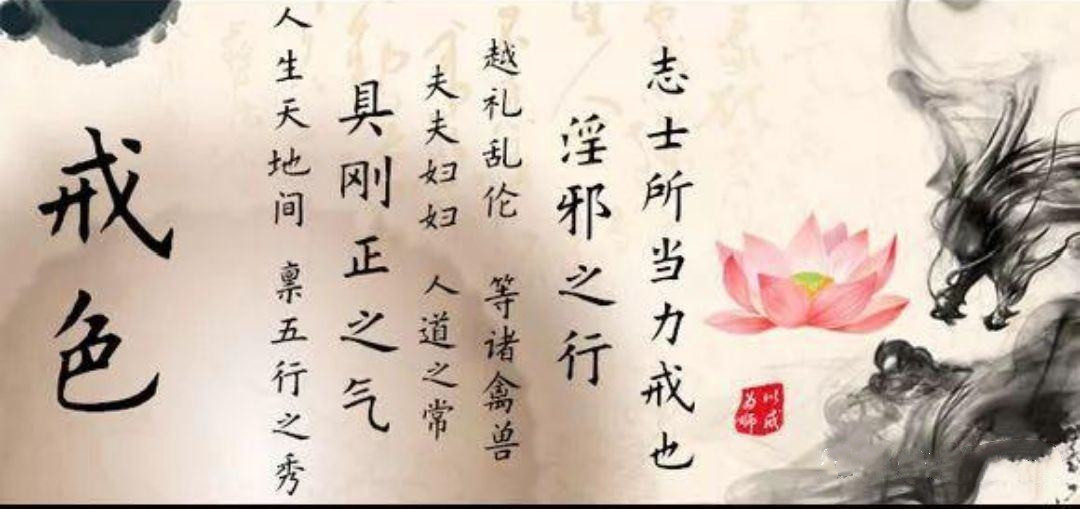 戒色
人生天地间 禀五行之秀
具刚正之气
夫夫妇妇 人道之常
越礼乱伦 等诸禽兽
淫邪之行
志士所当力戒也
以戒为师